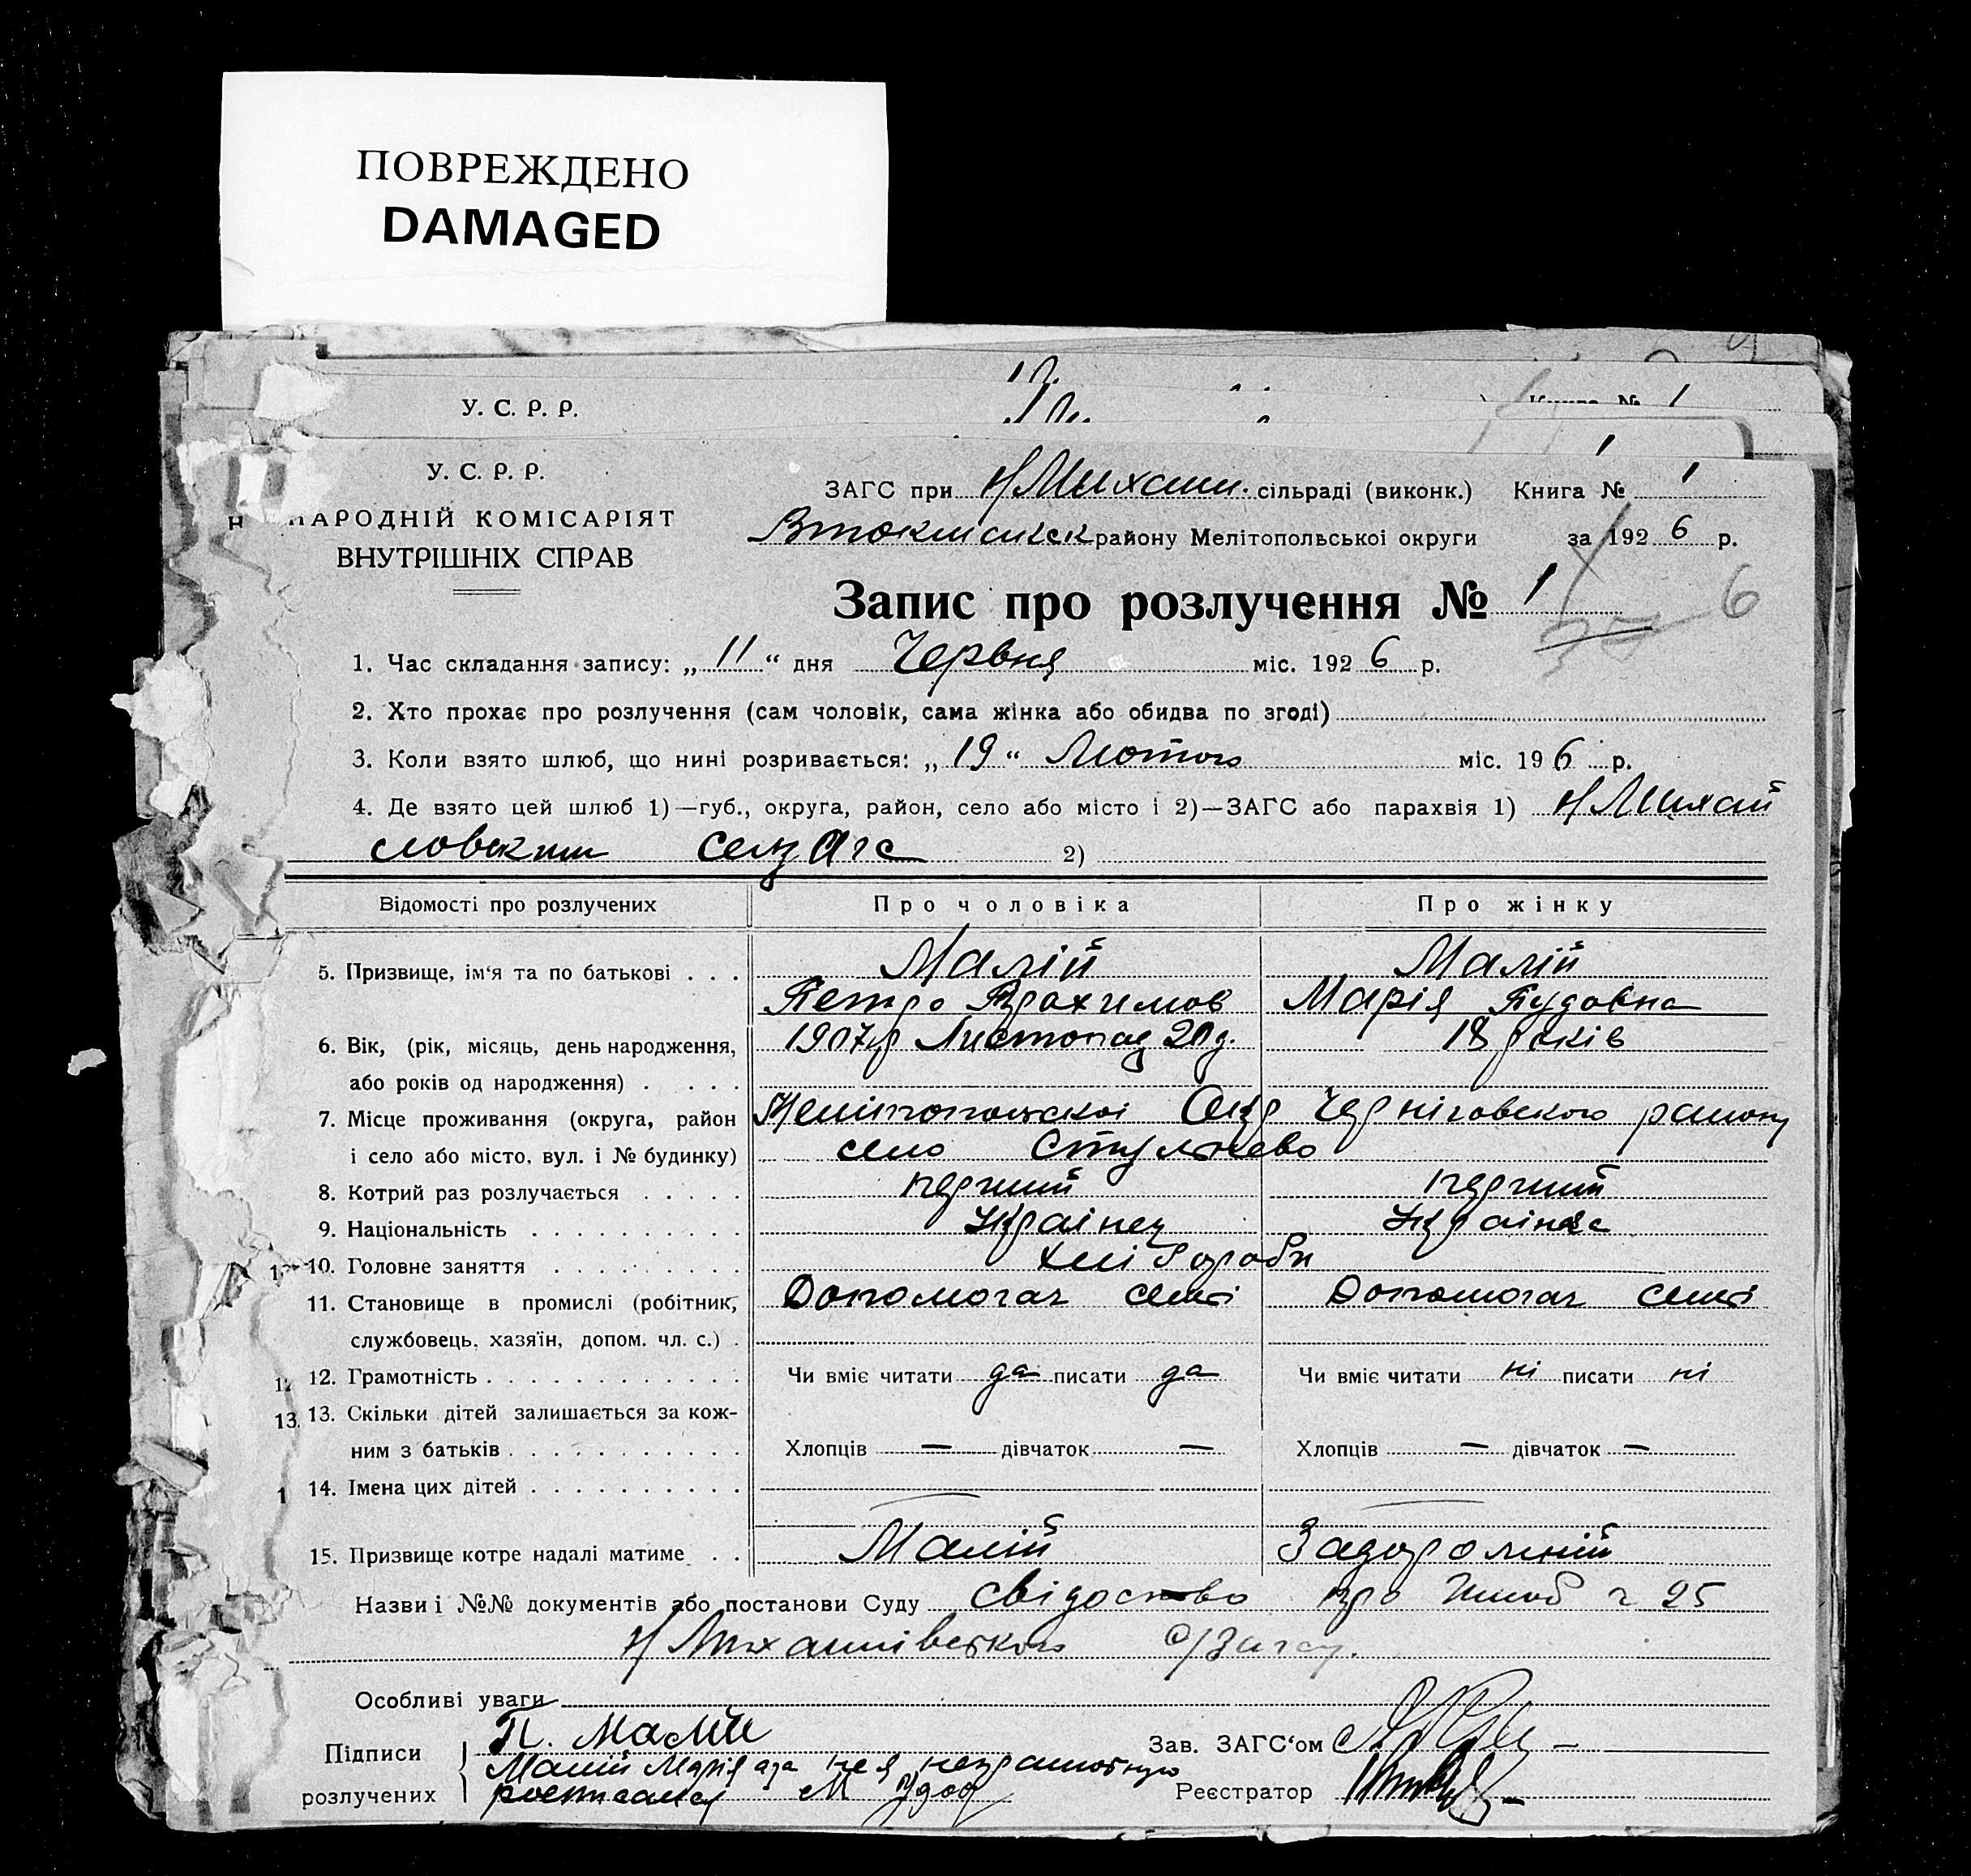 ПОВРЕЖДЕНО
DAMAGED
У. С. Р. Р.
Книга № 1
У. С. Р. Р.
НАРОДНІЙ КОМІСАРІЯТ
ВНУТРІШНІХ СПРАВ
ЗАГС при Н Михайл. сільраді (виконк.) Книга № 1
Втокмакск району Мелітопольської округи за 1926 р.
Запис про розлучення № 1
6
1. Час складання запису: „ 11 “ дня Червня міс. 1926 р.
2. Хто прохає про розлучення (сам чоловік, сама жінка або обидва по згоді)
3. Коли взято шлюб, що нині розривається: „ 19 “ Лютого міс. 19 6 р.
4. Де взято цей шлюб 1)—губ., округа, район, село або місто і 2)—ЗАГС або парахвія 1) Н Михай
ловским селзагс 2)
Відомості про розлучених Про чоловіка Про жінку
5. Призвище, ім‘я та по батькові . . . Малій Малій
Петро Трохимов Марія
6. Вік, (рік, місяць, день народження, 1907 р Листопад 20 д. 18 років
або років од народження) . . . .
7. Місце проживання (округа, район Мелітопольскоі Окр Черніговского району
і село або місто, вул. і № будинку) село Стульнево
8. Котрий раз розлучається . . . . . перший перший
9. Національність . . . . . . . . . . Украінец Украінка
10. Головне заняття . . . . . . . . . хлібороби
11. Становище в промислі (робітник, Допомогач семі Допомогач семі
службовець, хазяїн, допом. чл. с.) .
12. Грамотність . . . . . . . . . . . . Чи вміє читати да писати да Чи вміє читати ні писати ні
13. Скільки дітей залишається за кож-
ним з батьків . . . . . . . . . . . Хлопців — дівчаток — Хлопців — дівчаток —
14. Імена цих дітей . . . . . . . . . .
15. Призвище котре надалі матиме . . Малій Задорожній
Назви і №№ документів або постанови Суду свідоство про шлюб ч 25
Н Михайлівского с/загсу.
Особливі уваги
Підписи П. Малій Зав. ЗАГС‘ом
Малій Марія а за нея неграмотную
розлучених росписался М Удод Реєстратор